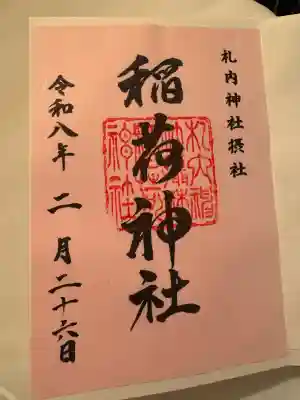 札内神社摂社
稲荷神社
令和八年二月二十六日